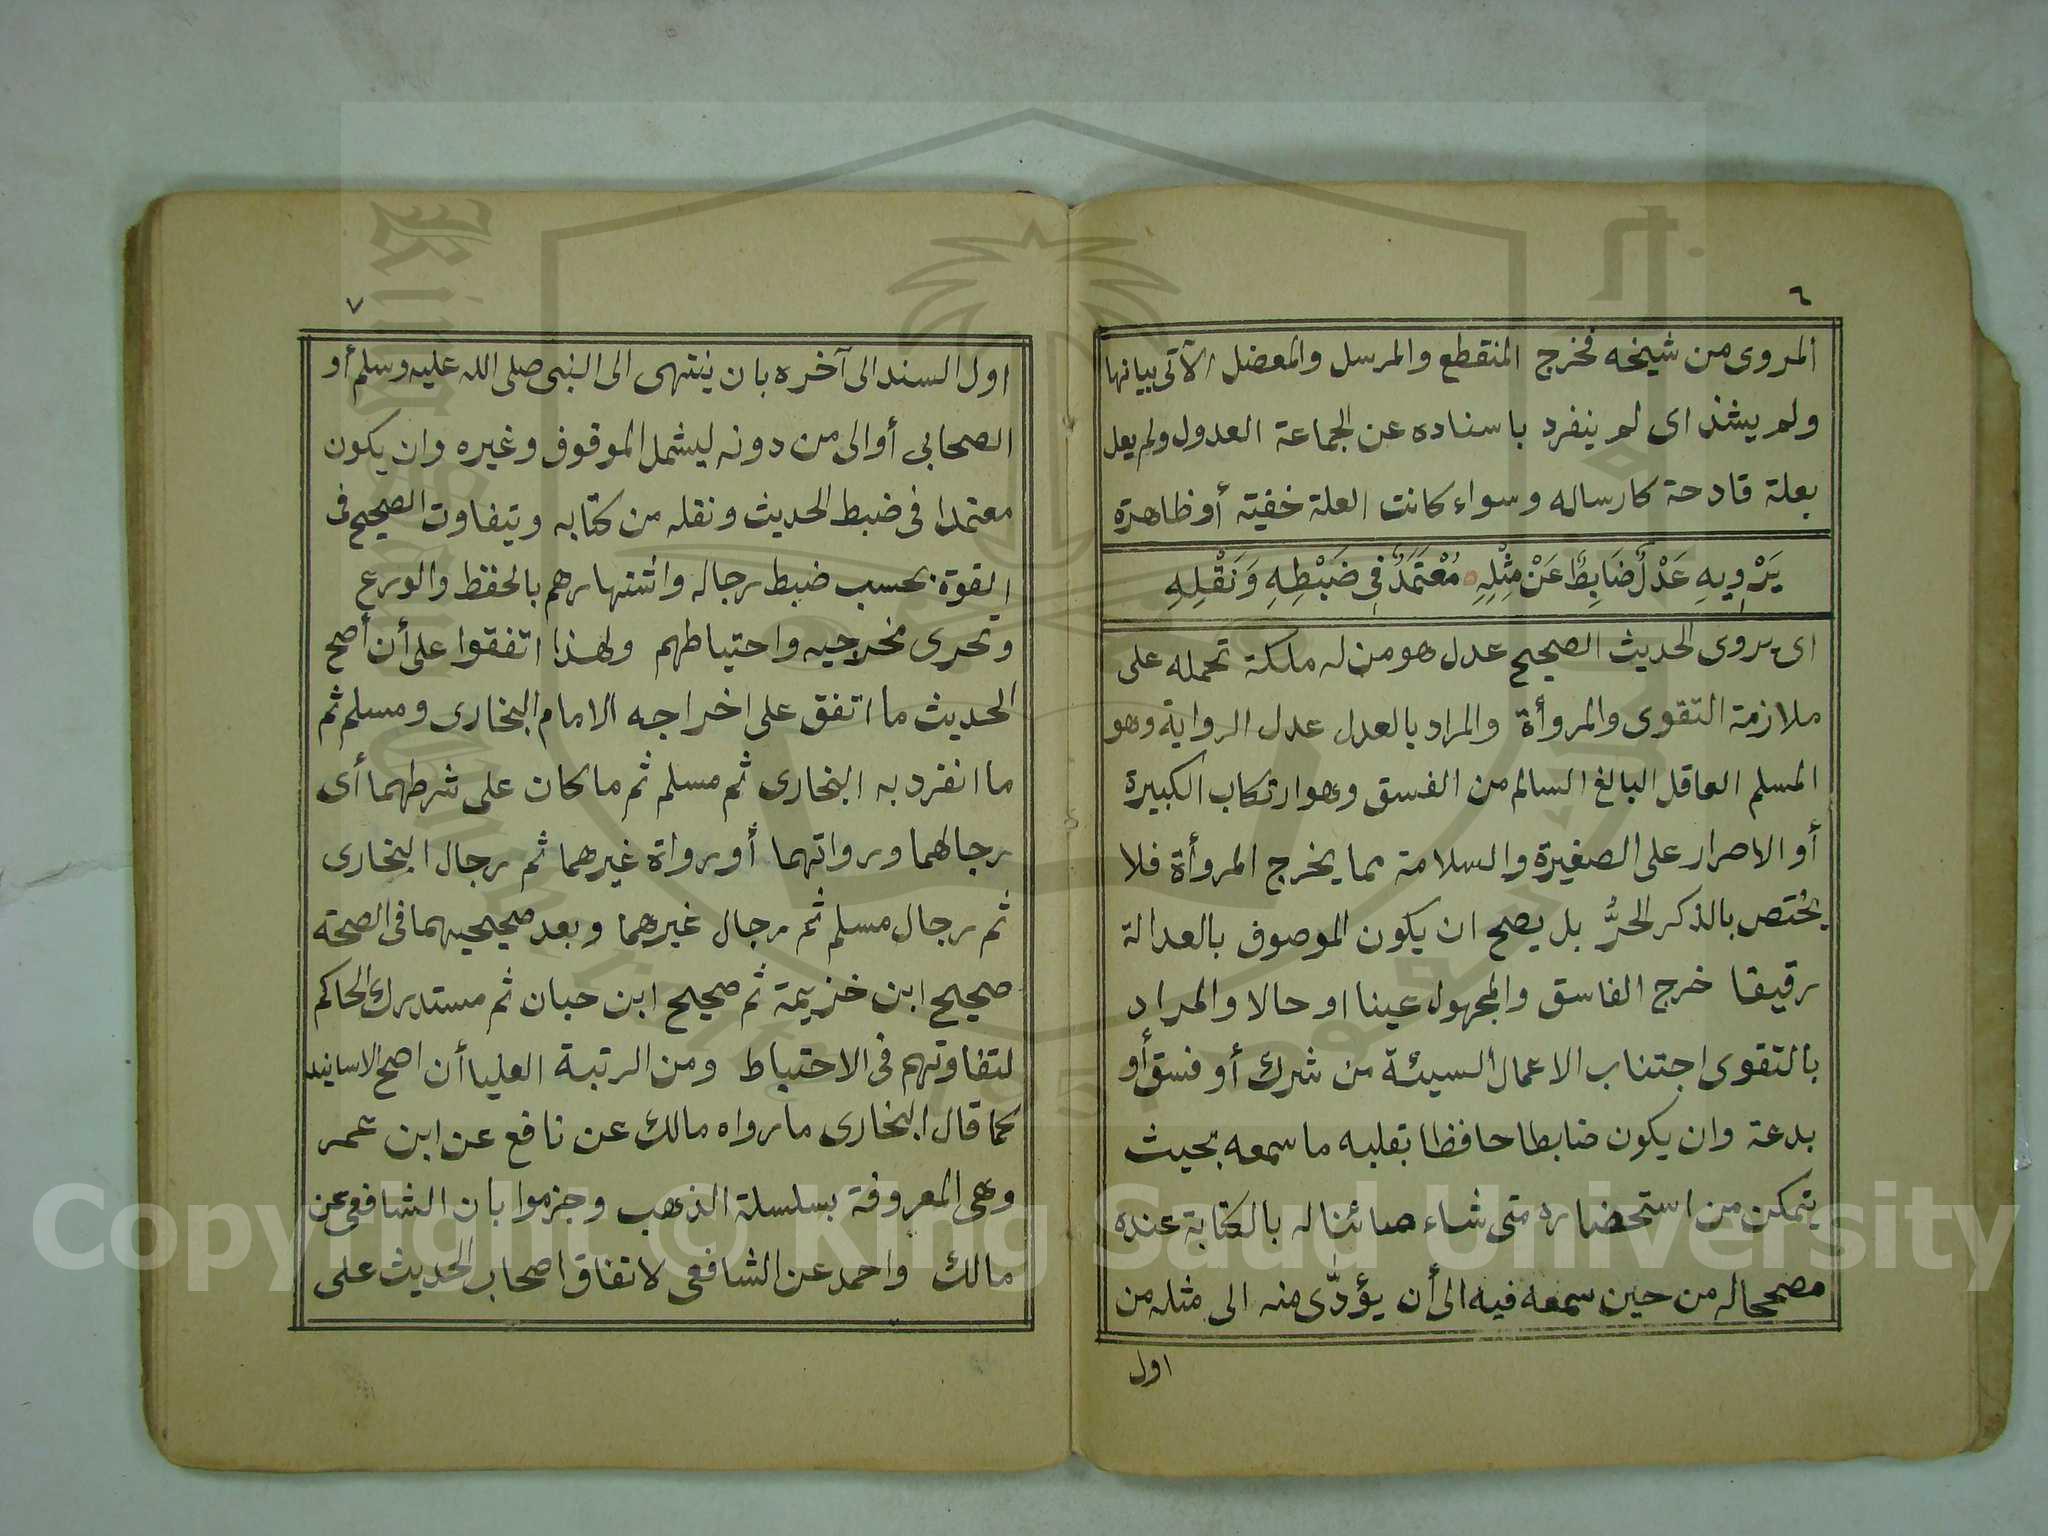 ٦
المروى من شيخه فخرج المنقطع والمرسل والمعضل الآتى بيانها
ولم يشذ اى لم ينفرد باسناده عن الجماعة العدول ولم يعل
بعلة قادحة كارساله وسواء كانت العلة خفية أو ظاهرة
يَرْوِيهِ عَدْلٌ ضَابِطٌ عَنْ مِثْلِهِ ٥ مُعْتَمَدٌ فِي ضَبْطِهِ وَنَقْلِهِ
اى يروى الحديث الصحيح عدل هو من له ملكة تحمله على
ملازمة التقوى والمروأة والمراد بالعدل عدل الرواية وهو
المسلم العاقل البالغ السالم من الفسق وهو ارتكاب الكبيرة
أو الاصرار على الصغيرة والسلامة مما يخرج المروأة فلا
يختص بالذكر الحرُّ بل يصح ان يكون الموصوف بالعدالة
رقيقا خرج الفاسق والمجهول عينا او حالا والمراد
بالتقوى اجتناب الاعمال السيئة من شرك أو فسق أو
بدعة وان يكون ضابطا حافظا بقلبه ما سمعه بحيث
يتمكن من استحضاره متى شاء صائنا له بالكتابة عنده
مصححا له من حين سمعه فيه الى أن يؤدّى منه الى مثله من
اول
٧
اول السند الى آخره بان ينتهى الى النبى صلى الله عليه وسلم أو
الصحابي أو الى من دونه ليشمل الموقوف وغيره وان يكون
معتمدا فى ضبط الحديث ونقله من كتابه ويتفاوت الصحيح فى
القوة بحسب ضبط رجاله واشتهارهم بالحفظ والورع
وتحرى مخرجيه واحتياطهم ولهذا اتفقوا على أن أصح
الحديث ما اتفق على اخراجه الامام البخارى ومسلم ثم
ما انفرد به البخارى ثم مسلم ثم ما كان على شرطهما أى
رجالهما ورواتهما أو رواة غيرهما ثم رجال البخارى
ثم رجال مسلم ثم رجال غيرهما وبعد صحيحيهما فى الصحة
صحيح ابن خزيمة ثم صحيح ابن حبان ثم مستدرك الحاكم
لتفاوتهم فى الاحتياط ومن الرتبة العليا أن اصح الاسانيد
كما قال البخارى ما رواه مالك عن نافع عن ابن عمر
وهى المعروفة بسلسلة الذهب وجزموا بان الشافعى عن
مالك واحمد عن الشافعى لاتفاق اصحاب الحديث على
Copyright © King Saud University